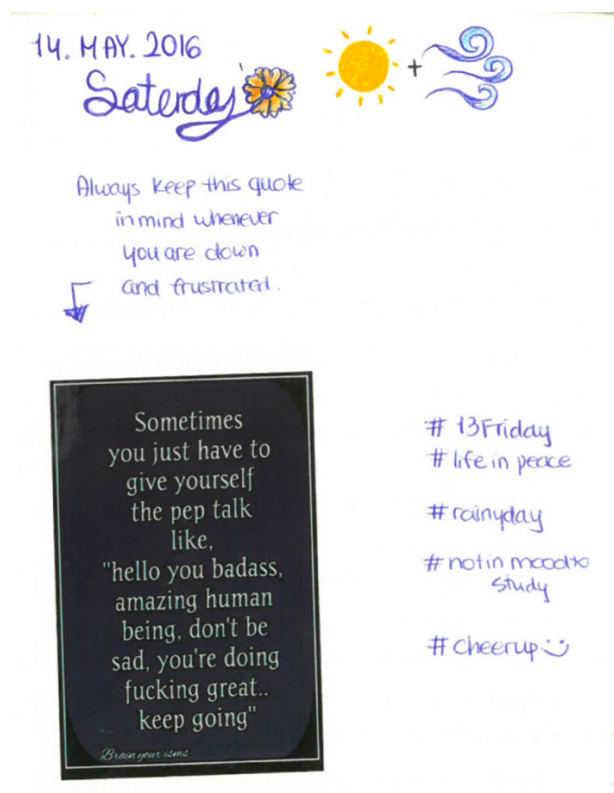 14. MAY. 2016
Saterday
+
Always keep this quote
in mind whenever
you are down
and frustrated.
Sometimes
you just have to
give yourself
the pep talk
like,
"hello you badass,
amazing human
being, don't be
sad, you're doing
fucking great..
keep going"
Brain your isms
# 13Friday
# life in peace
# rainyday
# notin moodto
study
# cheerup :)